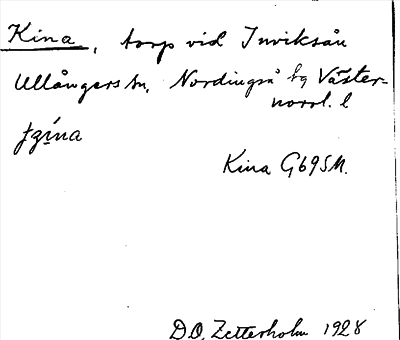 Kina, torp vid Inviksån
Ullångers sn, Nordingrå tg Väster-
norrl. l
Kina G69SM.
D.O. Zetterholm 1928